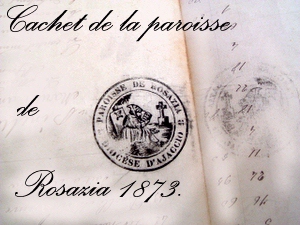 Cachet de la paroisse
de
PAROISSE DE ROSAZIA
DIOCÈSE D'AJACCIO
Rosazia 1873.